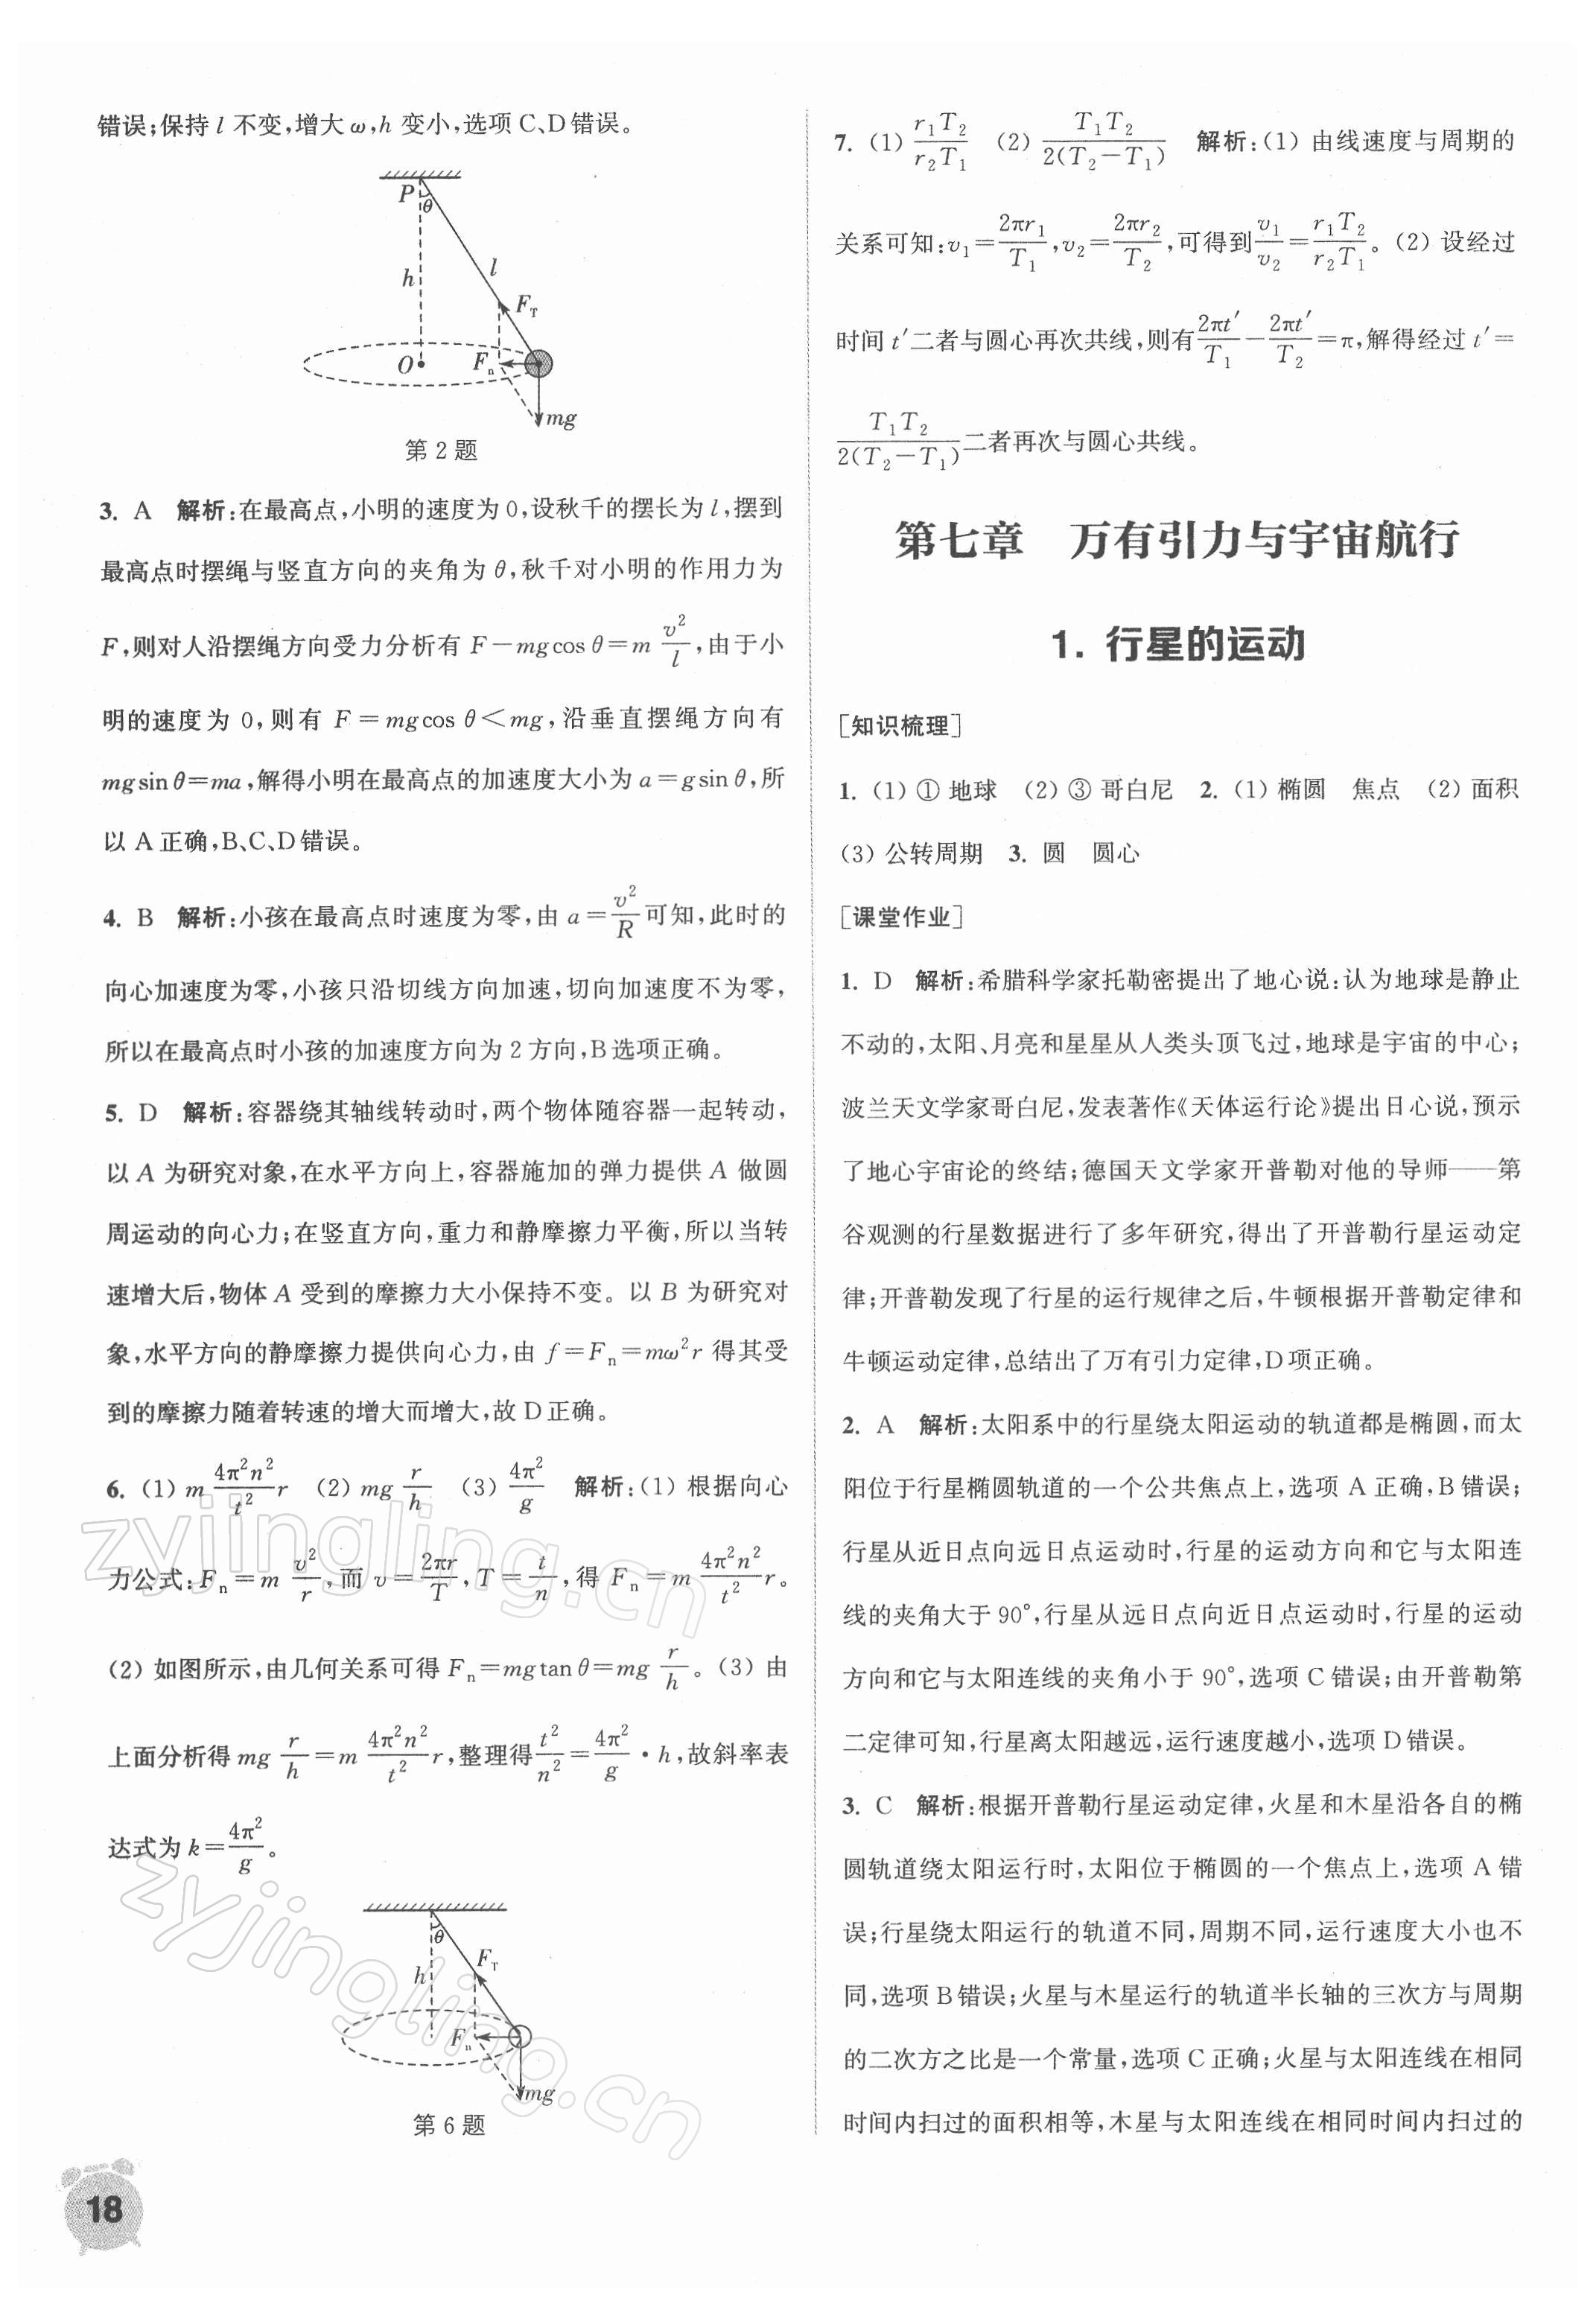 错误;保持 l 不变,增大 ω,h 变小,选项 C、D 错误。
P
θ
l
h
F_T
O
F_n
mg
第 2 题
3. A 解析:在最高点,小明的速度为 0,设秋千的摆长为 l,摆到
最高点时摆绳与竖直方向的夹角为 θ,秋千对小明的作用力为
F,则对人沿摆绳方向受力分析有 F－mgcos θ＝m v²/l,由于小
明的速度为 0,则有 F＝mgcos θ＜mg,沿垂直摆绳方向有
mgsin θ＝ma,解得小明在最高点的加速度大小为 a＝gsin θ,所
以 A 正确,B、C、D 错误。
4. B 解析:小孩在最高点时速度为零,由 a＝v²/R 可知,此时的
向心加速度为零,小孩只沿切线方向加速,切向加速度不为零,
所以在最高点时小孩的加速度方向为 2 方向,B 选项正确。
5. D 解析:容器绕其轴线转动时,两个物体随容器一起转动,
以 A 为研究对象,在水平方向上,容器施加的弹力提供 A 做圆
周运动的向心力;在竖直方向,重力和静摩擦力平衡,所以当转
速增大后,物体 A 受到的摩擦力大小保持不变。以 B 为研究对
象,水平方向的静摩擦力提供向心力,由 f＝F_n＝mω²r 得其受
到的摩擦力随着转速的增大而增大,故 D 正确。
6. (1) m 4π²n²/t² r (2) mg r/h (3) 4π²/g 解析:(1) 根据向心
力公式:F_n＝m v²/r,而 v＝2πr/T,T＝t/n,得 F_n＝m 4π²n²/t² r。
(2) 如图所示,由几何关系可得 F_n＝mgtan θ＝mg r/h。(3) 由
上面分析得 mg r/h＝m 4π²n²/t² r,整理得 t²/n²＝4π²/g · h,故斜率表
达式为 k＝4π²/g。
θ
F_T
h
F_n
mg
第 6 题
18
7. (1) r₁T₂/r₂T₁ (2) T₁T₂/2(T₂－T₁) 解析:(1) 由线速度与周期的
关系可知:v₁＝2πr₁/T₁,v₂＝2πr₂/T₂,可得到 v₁/v₂＝r₁T₂/r₂T₁。(2) 设经过
时间 t′二者与圆心再次共线,则有 2πt′/T₁－2πt′/T₂＝π,解得经过 t′＝
T₁T₂/2(T₂－T₁)二者再次与圆心共线。
第七章 万有引力与宇宙航行
1. 行星的运动
[知识梳理]
1. (1) ① 地球 (2) ③ 哥白尼 2. (1) 椭圆 焦点 (2) 面积
(3) 公转周期 3. 圆 圆心
[课堂作业]
1. D 解析:希腊科学家托勒密提出了地心说:认为地球是静止
不动的,太阳、月亮和星星从人类头顶飞过,地球是宇宙的中心;
波兰天文学家哥白尼,发表著作《天体运行论》提出日心说,预示
了地心宇宙论的终结;德国天文学家开普勒对他的导师——第
谷观测的行星数据进行了多年研究,得出了开普勒行星运动定
律;开普勒发现了行星的运行规律之后,牛顿根据开普勒定律和
牛顿运动定律,总结出了万有引力定律,D 项正确。
2. A 解析:太阳系中的行星绕太阳运动的轨道都是椭圆,而太
阳位于行星椭圆轨道的一个公共焦点上,选项 A 正确,B 错误;
行星从近日点向远日点运动时,行星的运动方向和它与太阳连
线的夹角大于 90°,行星从远日点向近日点运动时,行星的运动
方向和它与太阳连线的夹角小于 90°,选项 C 错误;由开普勒第
二定律可知,行星离太阳越远,运行速度越小,选项 D 错误。
3. C 解析:根据开普勒行星运动定律,火星和木星沿各自的椭
圆轨道绕太阳运行时,太阳位于椭圆的一个焦点上,选项 A 错
误;行星绕太阳运行的轨道不同,周期不同,运行速度大小也不
同,选项 B 错误;火星与木星运行的轨道半长轴的三次方与周期
的二次方之比是一个常量,选项 C 正确;火星与太阳连线在相同
时间内扫过的面积相等,木星与太阳连线在相同时间内扫过的
zyjingling.cn
zyjingling.cn